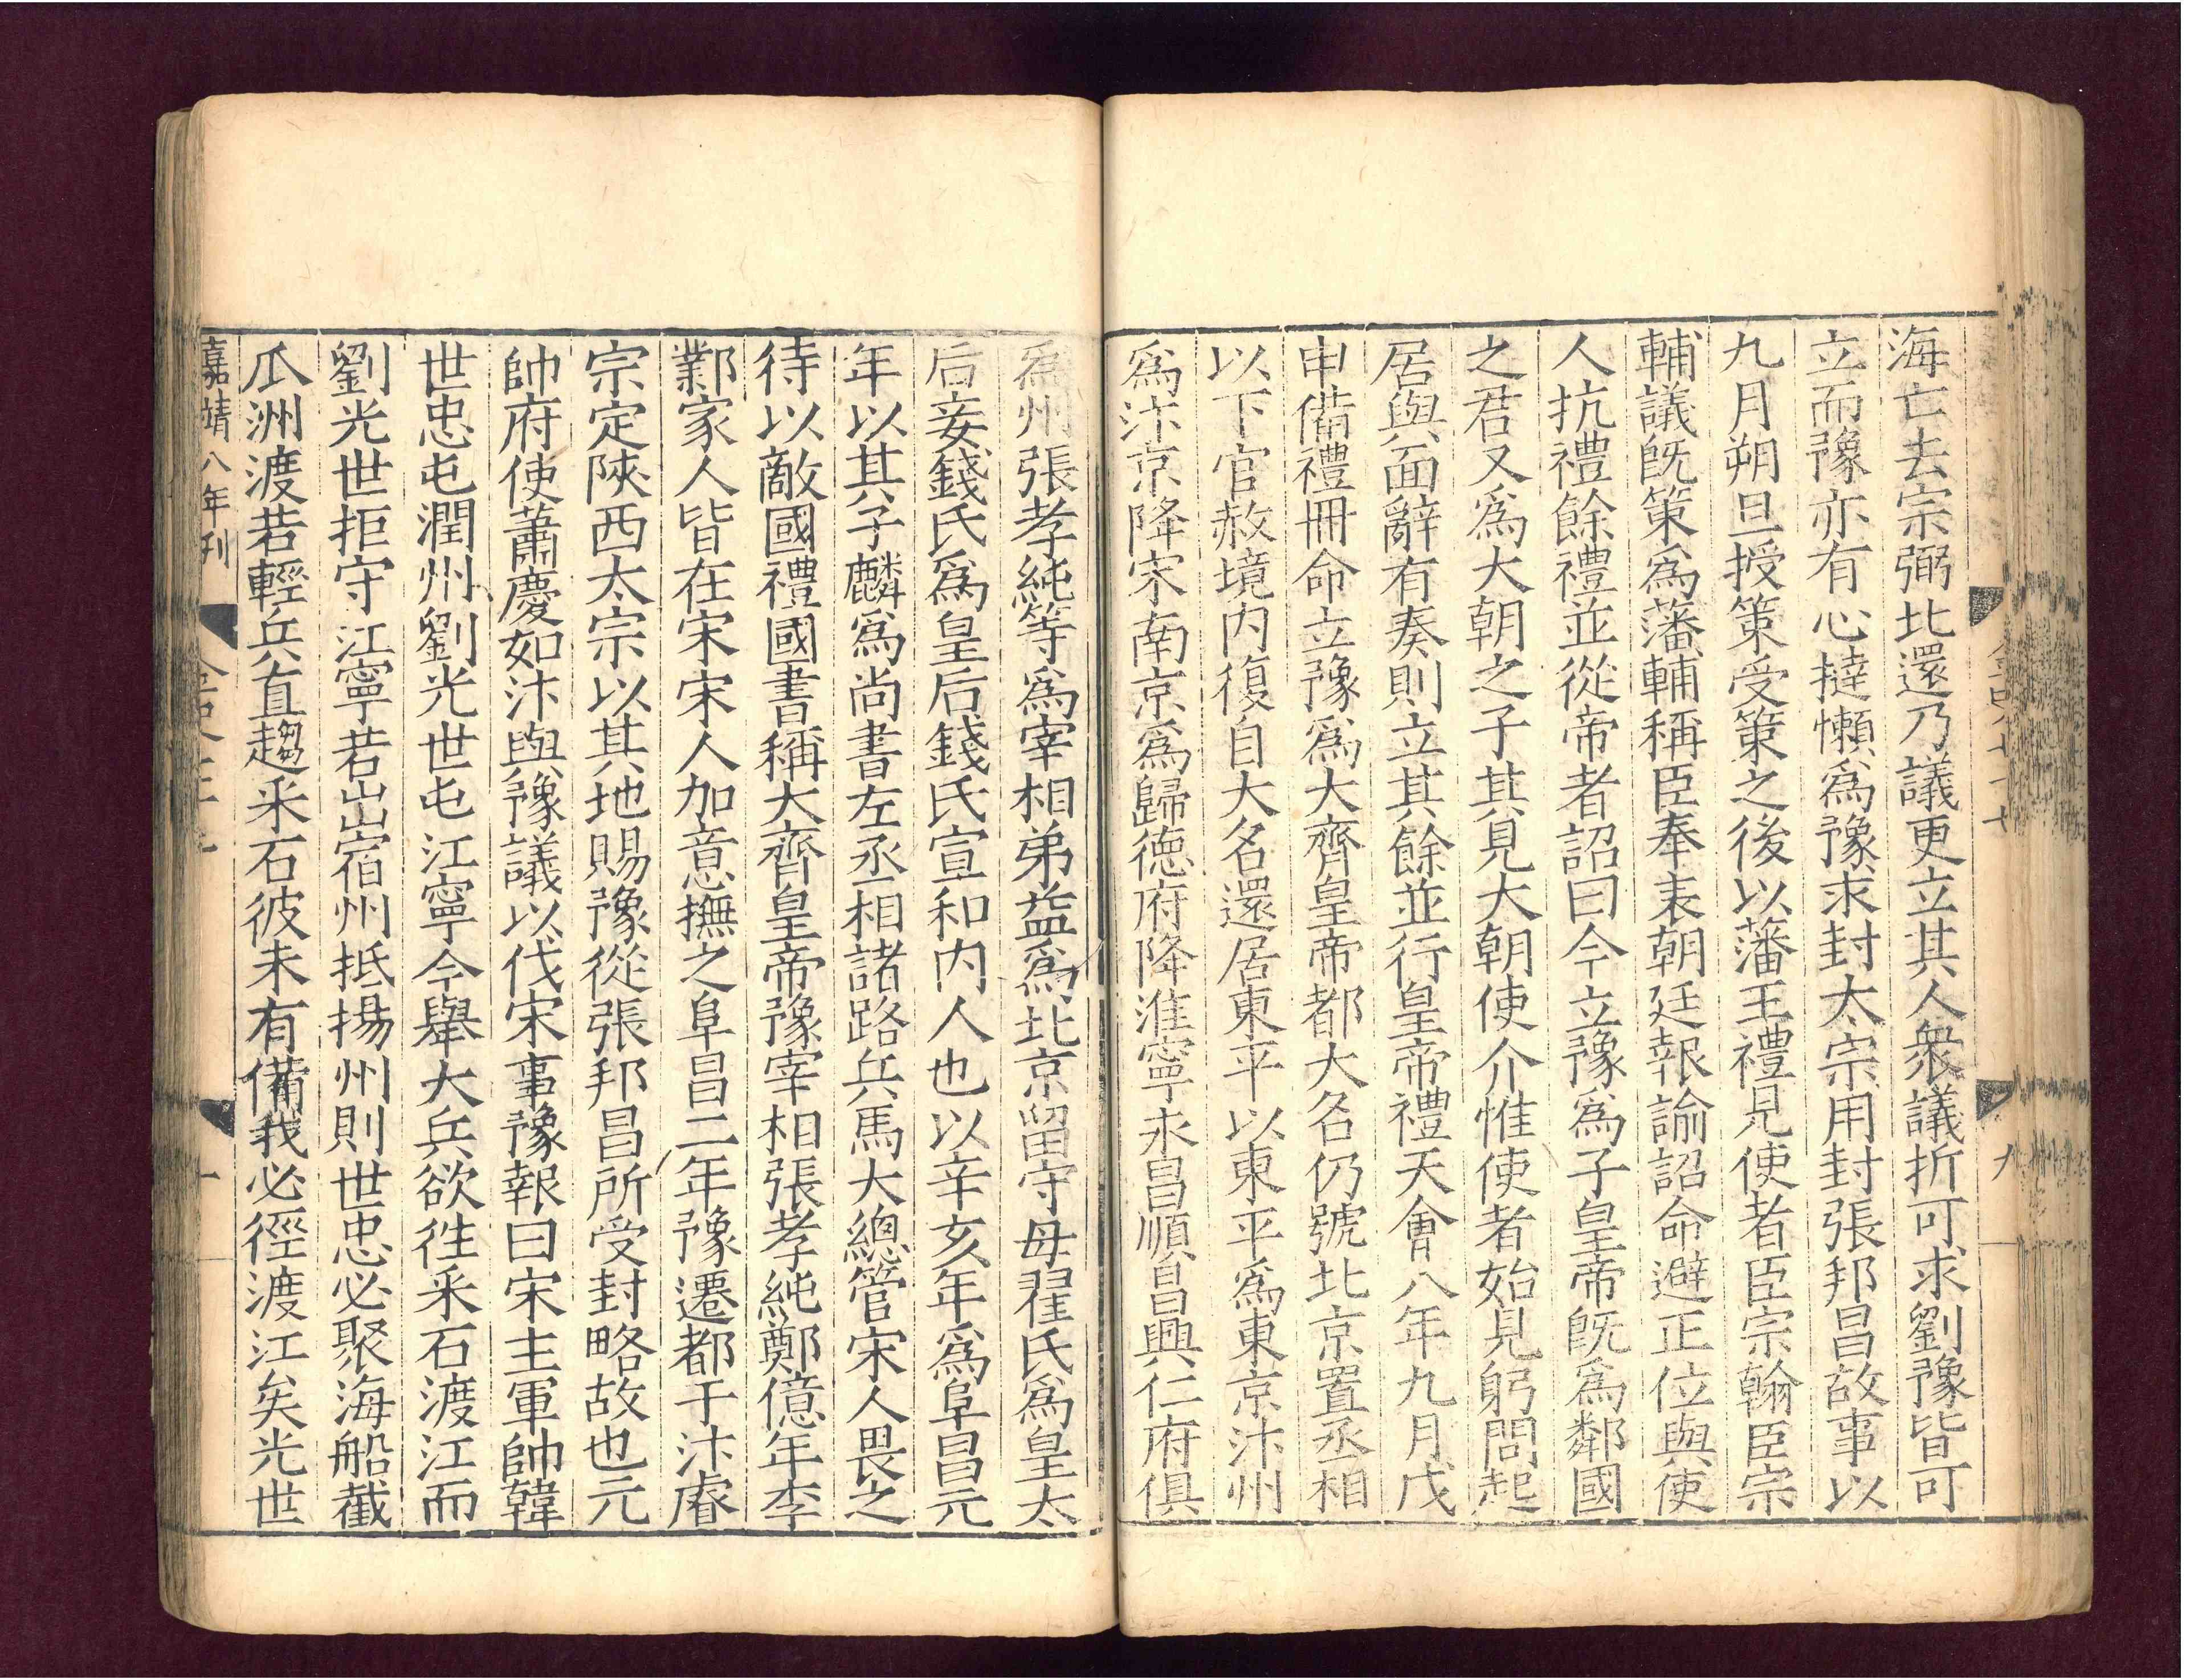 海亡去宗弼北還乃議更立其人衆議折可求劉豫皆可
立而豫亦有心撻懶爲豫求封太宗用封張邦昌故事以
九月朔旦授策受策之後以藩王禮見使者臣宗翰臣宗
輔議既策爲藩輔稱臣奉表朝廷報諭詔命避正位與使
人抗禮餘禮並從帝者詔曰今立豫爲子皇帝既爲鄰國
之君又爲大朝之子其見大朝使介惟使者始見躬問起
居與面辭有奏則立其餘並行皇帝禮天會八年九月戊
申備禮冊命立豫爲大齊皇帝都大名仍號北京置丞相
以下官赦境内復自大名還居東平以東平爲東京汴州
爲汴京降宋南京爲歸德府降淮寧永昌順昌興仁府俱
爲州張孝純等爲宰相弟益爲北京留守母翟氏爲皇太
后妾錢氏爲皇后錢氏宣和内人也以辛亥年爲阜昌元
年以其子麟爲尚書左丞相諸路兵馬大總管宋人畏之
待以敵國禮國書稱大齊皇帝豫宰相張孝純鄭億年李
鄴家人皆在宋宋人加意撫之阜昌二年豫遷都于汴睿
宗定陝西太宗以其地賜豫從張邦昌所受封略故也元
帥府使蕭慶如汴與豫議以伐宋事豫報曰宋主軍帥韓
世忠屯潤州劉光世屯江寧今舉大兵欲徃采石渡江而
劉光世拒守江寧若出宿州抵揚州則世忠必聚海船截
瓜洲渡若輕兵直趨采石彼未有備我必徑渡江矣光世
嘉靖八年刊